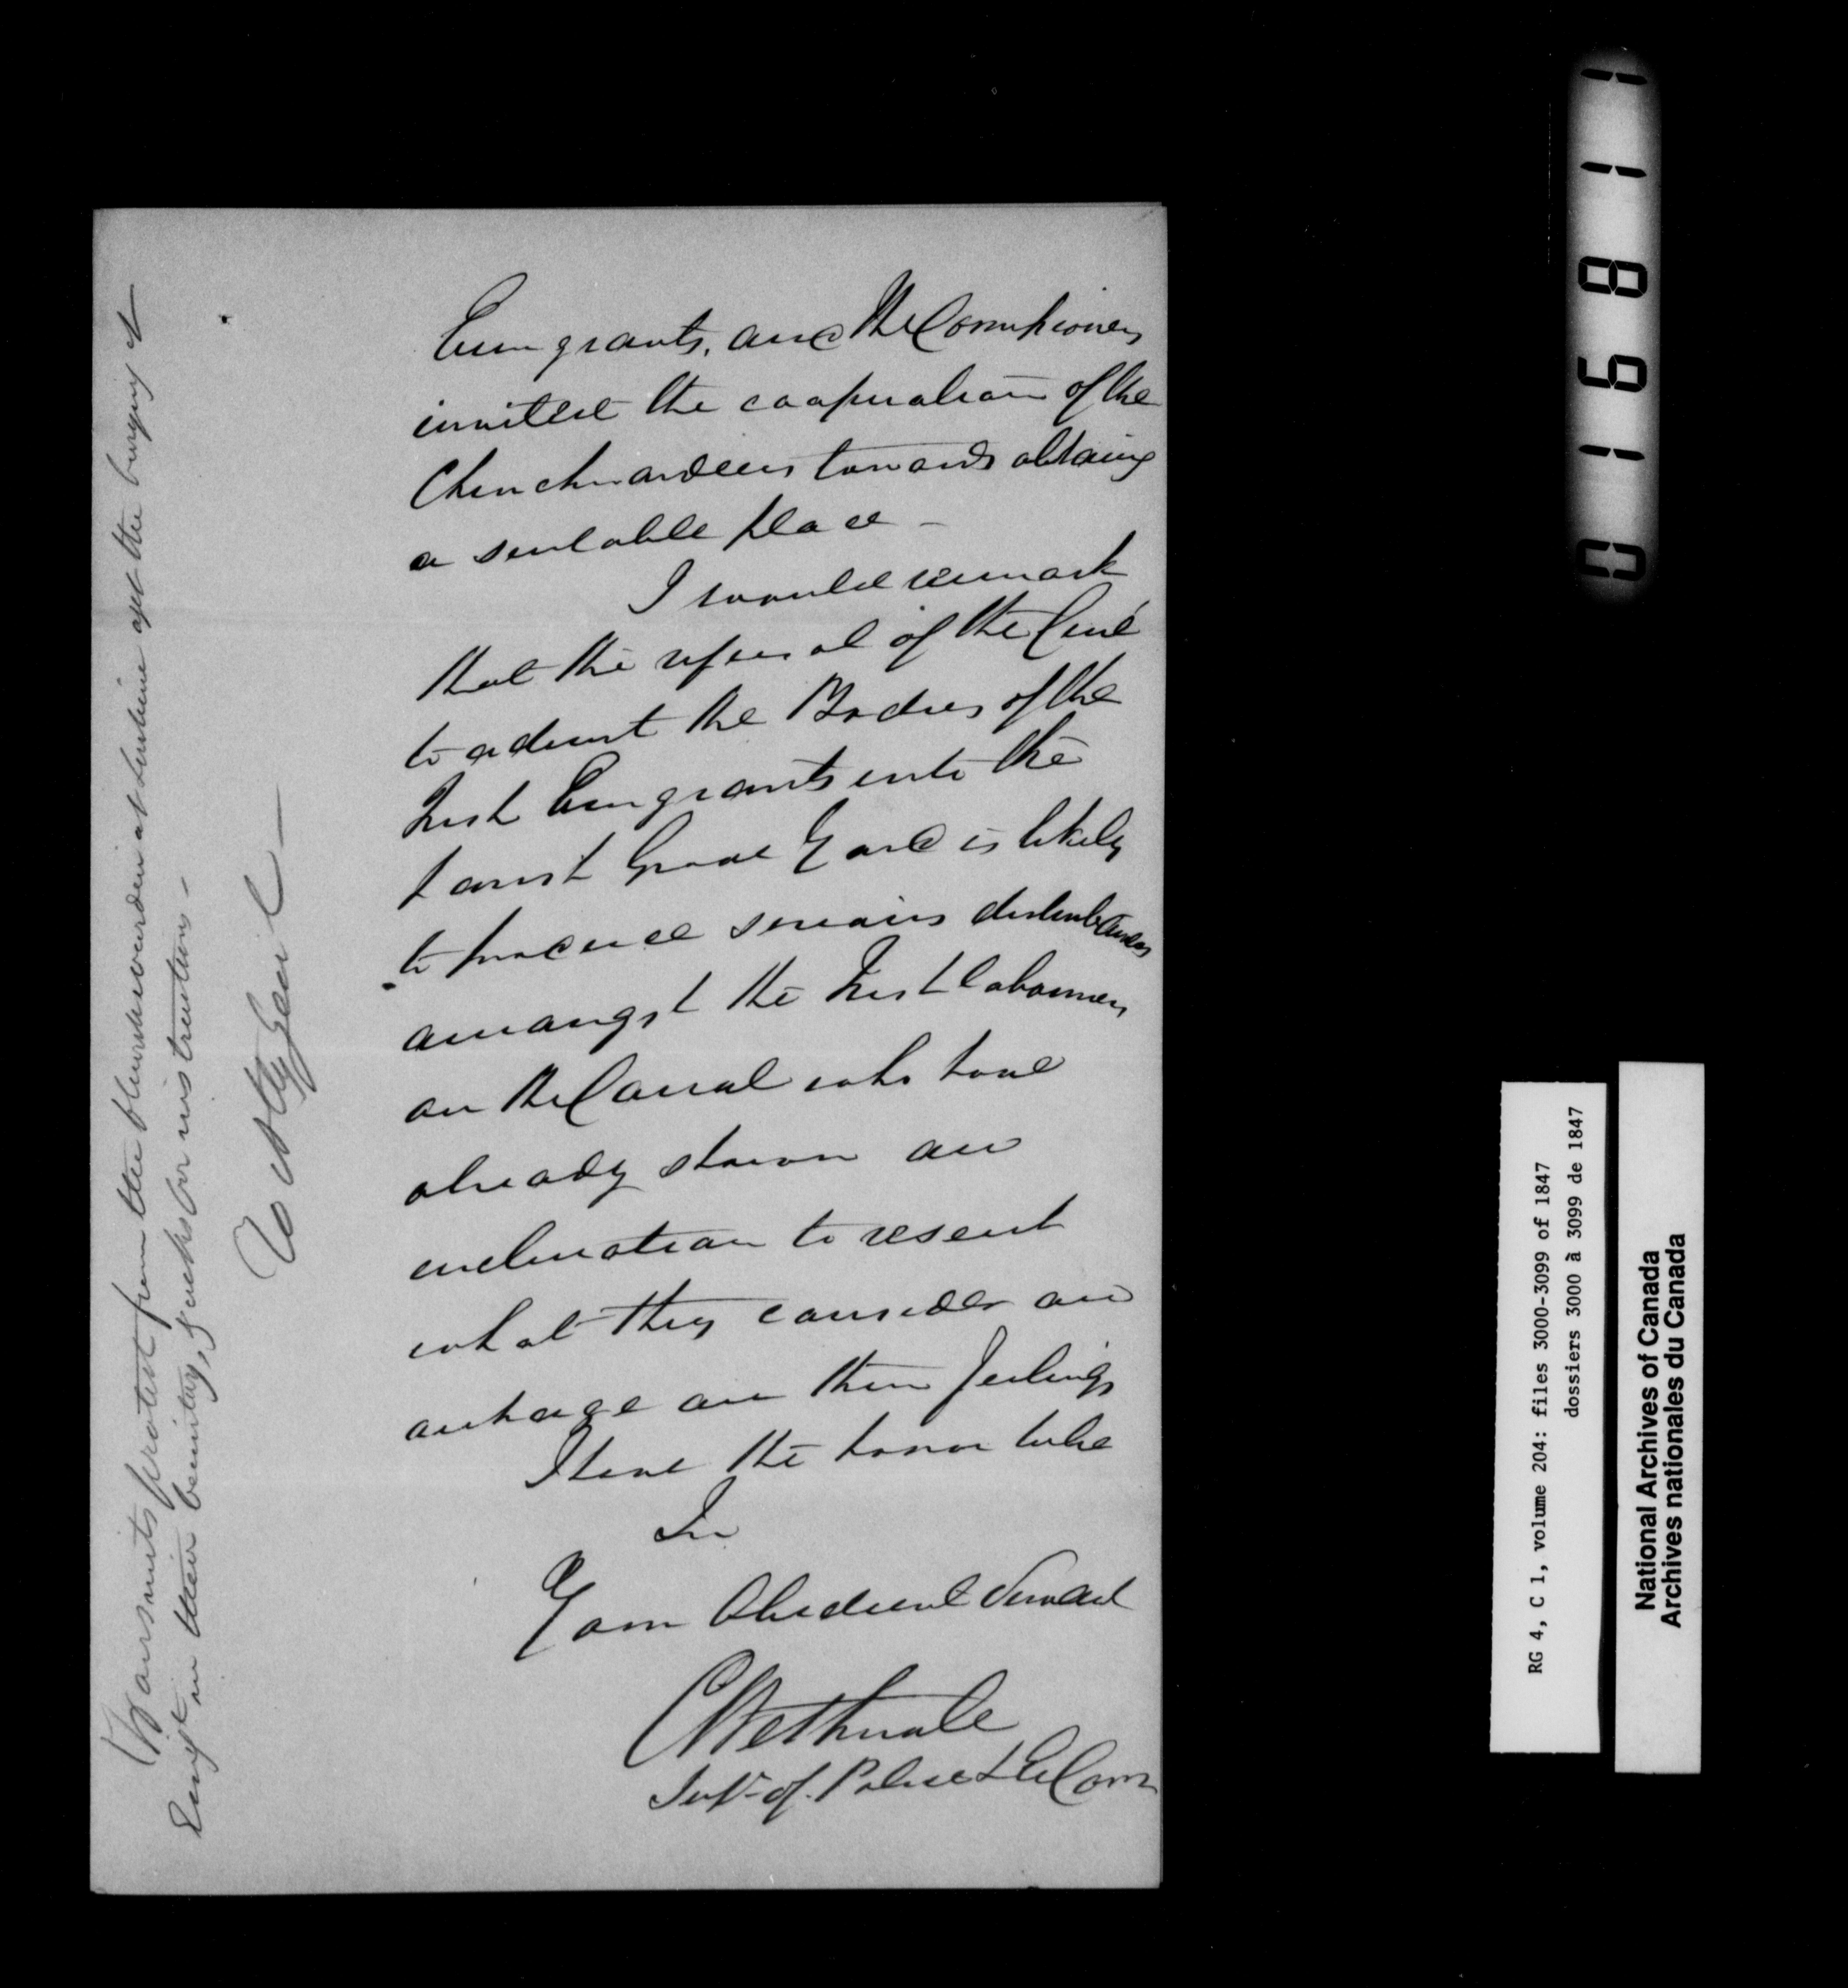 Emigrants, and the Commissioners
invited the cooperation of the
Churchwardens towards obtaing
a suitable place -
I would remark
that the refusal of the Curé
to admit the Bodies of the
Irish Emigrants into the
Parish Grave Yard is likely
to produce serious disturbances
amongst the Irish labourers
on the Canal who have
already shown an
inclination to resent
what they consider an
outrage on their feelings
I have the honor to be
Sir
Your Obedient Servant
C Wetherall
Supt. of Police & Com
Transmits protest from the Churchwarden at Lachine agst the burying of
Emigts in their Cemetery, & asks for instructions -
To Atty Genl -
011681
RG 4, C 1, volume 204: files 3000-3099 of 1847
dossiers 3000 à 3099 de 1847
National Archives of Canada
Archives nationales du Canada